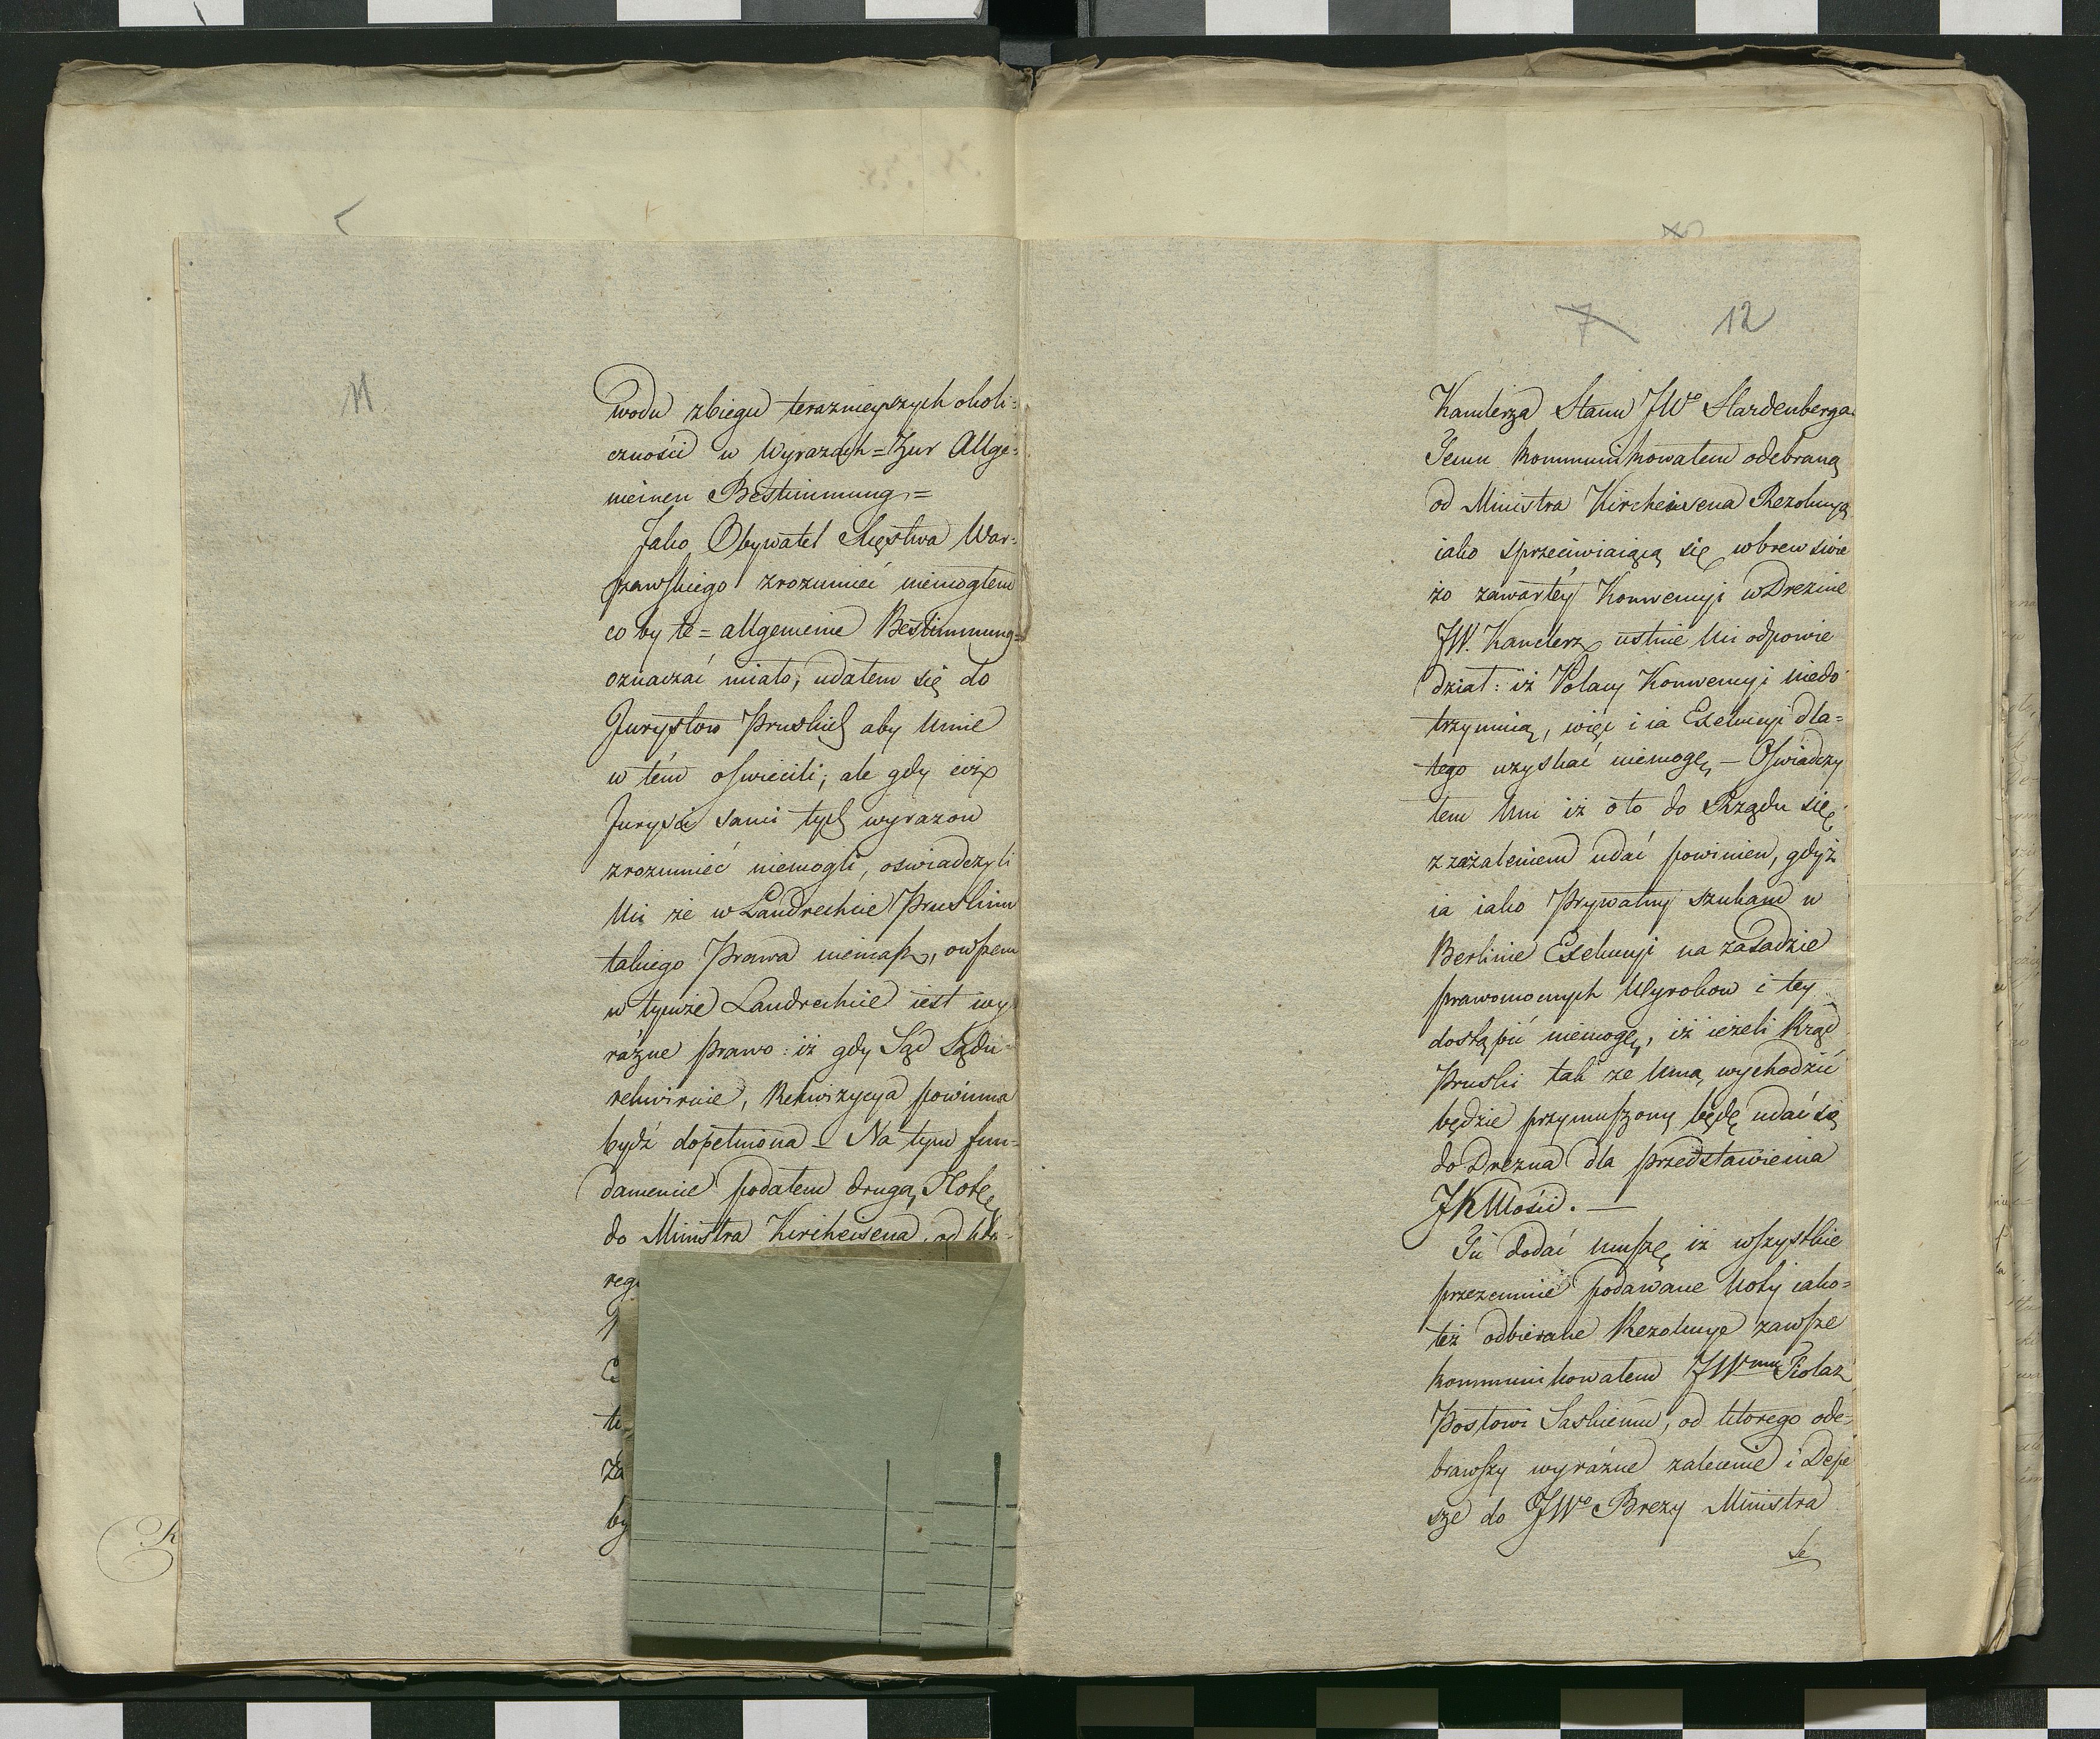 11
wodu zbiegu teraznieyszych okoli=
cznościi w Wyrazach = Zur Allge=
meinen Bestimmung =
Jako Obywatel Xięstwa War=
szawskiego zrozumieć niemogłem
co by te = allgemeine Bestimmung =
oznaczać miało, udałem się do
Jurystow Pruskich aby Mnie
w tém oświecili; ale gdy ciż
Juryści sami tych wyrazow
zrozumieć niemogli, oświadczyli
Mi że w Landrechcie Pruskim
takiego Prawa niemasz, owszem
w tymże Landrechcie iest wy
raźne prawo: iż gdy Sąd Sądu
rekwiruie, Rekwizycya powinna
bydź dopełniona – Na tym fun=
damencie podałem drugą Notę
do Ministra Kircheisena, od któ=
reg
te
za
by
7 12
Kanclerza Stanu JWo Hardenberga
Jemu kommunikowałem odebraną
od Ministra Kircheisena Rezolucyą
iako sprzeciwiaiącą się wbrew świe
żo zawartéy Konwencyi w Dreznie
JW. Kanclerz ustnie Mi odpowie
dział: iż Polacy Konwencyi niedo
trzymią, więc i ia Exekucyi dla=
tego uzyskać niemogę – Oświadczy
łem Mu iż oto do Rządu się
z zażaleniem udać powinien, gdyż
ia iako Prywatny szukam w
Berlinie Exekucyi na zasadzie
prawomocnych Wyrokow i tey
dostąpić niemogę, iż ieżeli Rząd
Pruski tak ze Mną wychodzić
będzie przymuszony będę udać się
do Drezna dla przedstawienia
JKMości. —
Tu dodać muszę iż wszystkie
przezemnie podawane Noty iako=
też odbierane Rezolucye zawsze
kommunikowałem JWmu Tiolaz
Posłowi Saskiemu, od ktorego ode=
brawszy wyraźne zalecenie i Depe
sze do JWo Brezy Ministra
Se